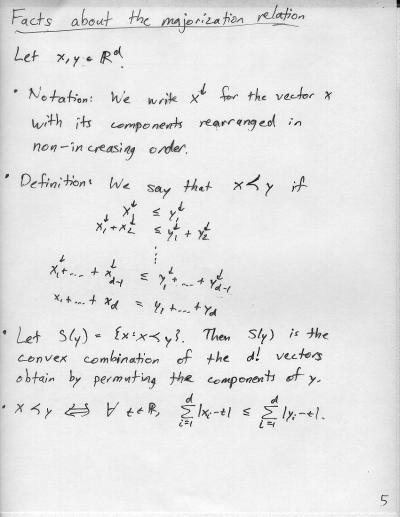 Facts about the majorization relation
Let x, y ∈ ℝᵈ.
• Notation: We write x↓ for the vector x
with its components rearranged in
non-increasing order.
• Definition: We say that x ≺ y if
x₁↓ ≤ y₁↓
x₁↓ + x₂↓ ≤ y₁↓ + y₂↓
⋮
x₁↓ + ... + x↓d-1 ≤ y₁↓ + ... + y↓d-1
x₁ + ... + xd = y₁ + ... + yd
• Let S(y) = {x : x ≺ y}. Then S(y) is the
convex combination of the d! vectors
obtain by permuting the components of y.
• x ≺ y ⟺ ∀ t ∈ ℝ, ∑ᵈᵢ₌₁ |xᵢ-t| ≤ ∑ᵈᵢ₌₁ |yᵢ-t|.
5